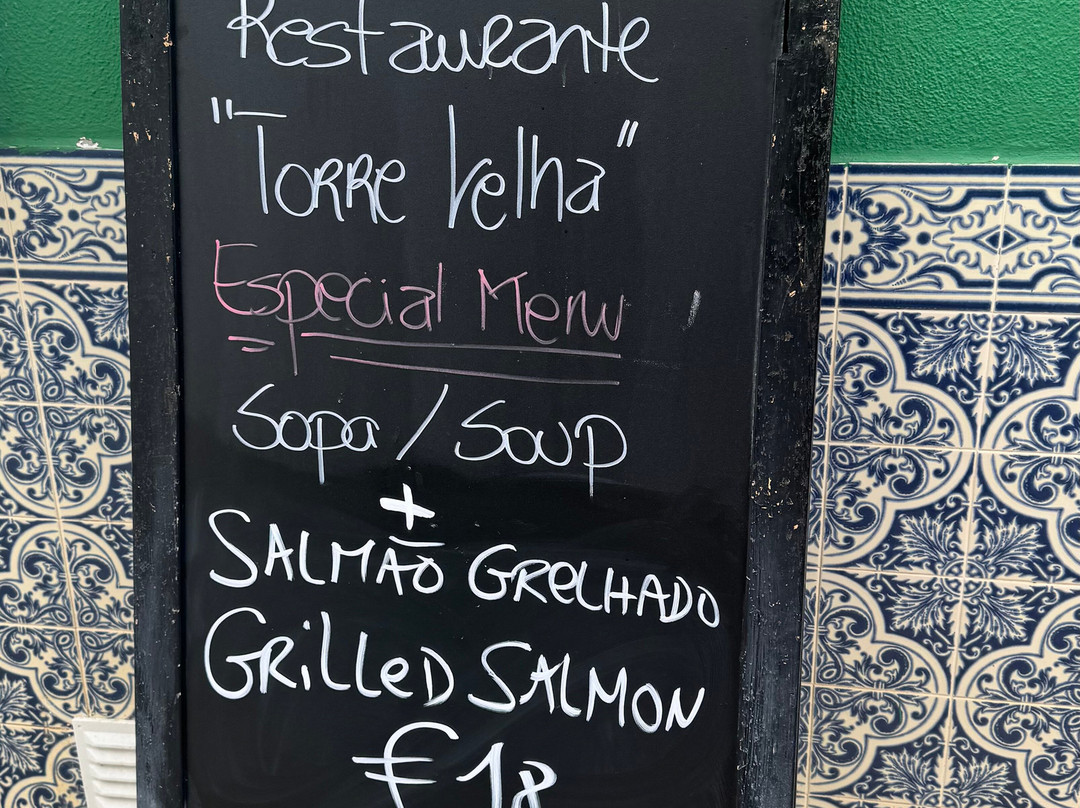 Restaurante
"Torre Velha"
Especial Menu
Sopa / Soup
+
SALMÃO GRELHADO
GRILLED SALMON
€18